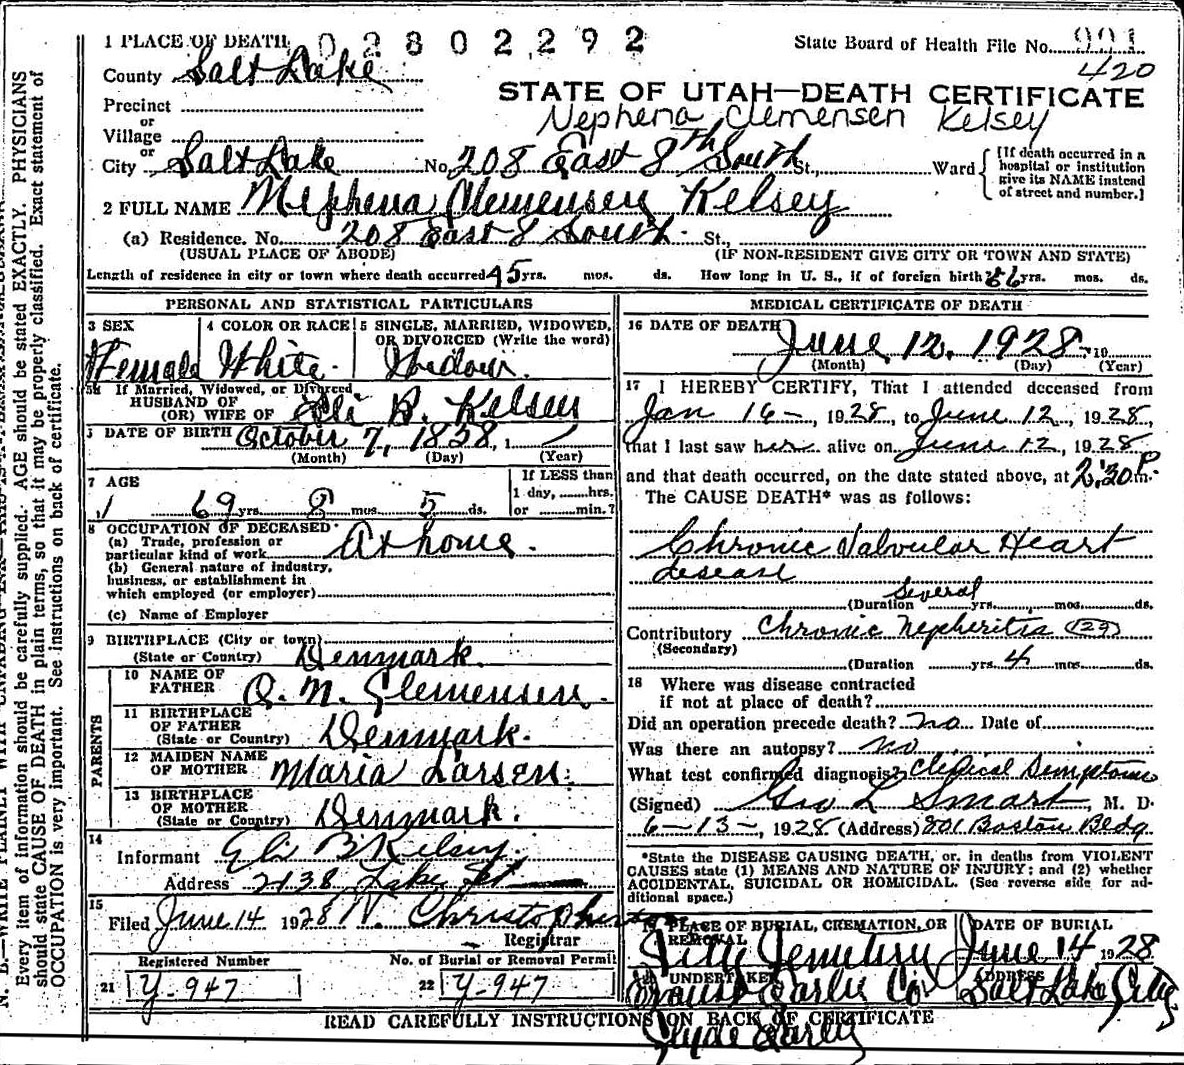 N. B.—WRITE PLAINLY WITH UNFADING INK—THIS IS A
Every item of information should be carefully supplied. AGE should be stated EXACTLY. PHYSICIANS
should state CAUSE OF DEATH in plain terms, so that it may be properly classified. Exact statement of
OCCUPATION is very important. See instructions on back of certificate.
1 PLACE OF DEATH 02802292
State Board of Health File No. 991
420
County Salt Lake
STATE OF UTAH—DEATH CERTIFICATE
Nephena Clemensen Kelsey
Precinct
or
Village
or
City Salt Lake No. 208 East 8th South St., Ward
[If death occurred in a
hospital or institution
give its NAME instead
of street and number.]
2 FULL NAME Nephena Clemensen Kelsey
(a) Residence. No. 208 East 8 South St.,
(USUAL PLACE OF ABODE) (IF NON-RESIDENT GIVE CITY OR TOWN AND STATE)
Length of residence in city or town where death occurred 45 yrs. mos. ds. How long in U. S., if of foreign birth? 66 yrs. mos. ds.
PERSONAL AND STATISTICAL PARTICULARS
3 SEX 4 COLOR OR RACE 5 SINGLE, MARRIED, WIDOWED,
OR DIVORCED (Write the word)
Female White Widow.
5a If Married, Widowed, or Divorced
HUSBAND OF
(OR) WIFE OF Eli B. Kelsey
DATE OF BIRTH October 7, 1858, 1
(Month) (Day) (Year)
7 AGE If LESS than
1 day, hrs.
or min.?
69 yrs. 8 mos. 5 ds.
8 OCCUPATION OF DECEASED
(a) Trade, profession or
particular kind of work At home.
(b) General nature of industry,
business, or establishment in
which employed (or employer)
(c) Name of Employer
9 BIRTHPLACE (City or town)
(State or Country) Denmark.
PARENTS
10 NAME OF
FATHER O. N. Clemensen.
11 BIRTHPLACE
OF FATHER
(State or Country) Denmark.
12 MAIDEN NAME
OF MOTHER Maria Larsen.
13 BIRTHPLACE
OF MOTHER
(State or Country) Denmark.
14
Informant Eli B Kelsey.
Address 2138 Lake St
15
Filed June 14 1928 W. Christopherson
Registrar
Registered Number No. of Burial or Removal Permit
21 Y-947 22 Y-947
MEDICAL CERTIFICATE OF DEATH
16 DATE OF DEATH
June 12, 1928, 19
(Month) (Day) (Year)
17 I HEREBY CERTIFY, That I attended deceased from
Jan 16 -, 1928, to June 12, 1928,
that I last saw her alive on June 12, 1928
and that death occurred, on the date stated above, at 2:30 P.m.
The CAUSE DEATH* was as follows:
Chronic Valvular Heart
Disease
(Duration Several yrs. mos. ds.
Contributory Chronic Nepheritis (129)
(Secondary)
(Duration yrs. 4 mos. ds.
18 Where was disease contracted
if not at place of death?
Did an operation precede death? no Date of
Was there an autopsy? no
What test confirmed diagnosis? Clinical Symptoms
(Signed) Geo L Smart, M. D.
6-13-, 1928 (Address) 801 Boston Bldg
*State the DISEASE CAUSING DEATH, or, in deaths from VIOLENT
CAUSES state (1) MEANS AND NATURE OF INJURY; and (2) whether
ACCIDENTAL, SUICIDAL OR HOMICIDAL. (See reverse side for ad-
ditional space.)
19 PLACE OF BURIAL, CREMATION, OR DATE OF BURIAL
REMOVAL
City Cemetery June 14 1928
20 UNDERTAKER ADDRESS
Earley Co. Salt Lake City
Clyde Earley
READ CAREFULLY INSTRUCTIONS ON BACK OF CERTIFICATE